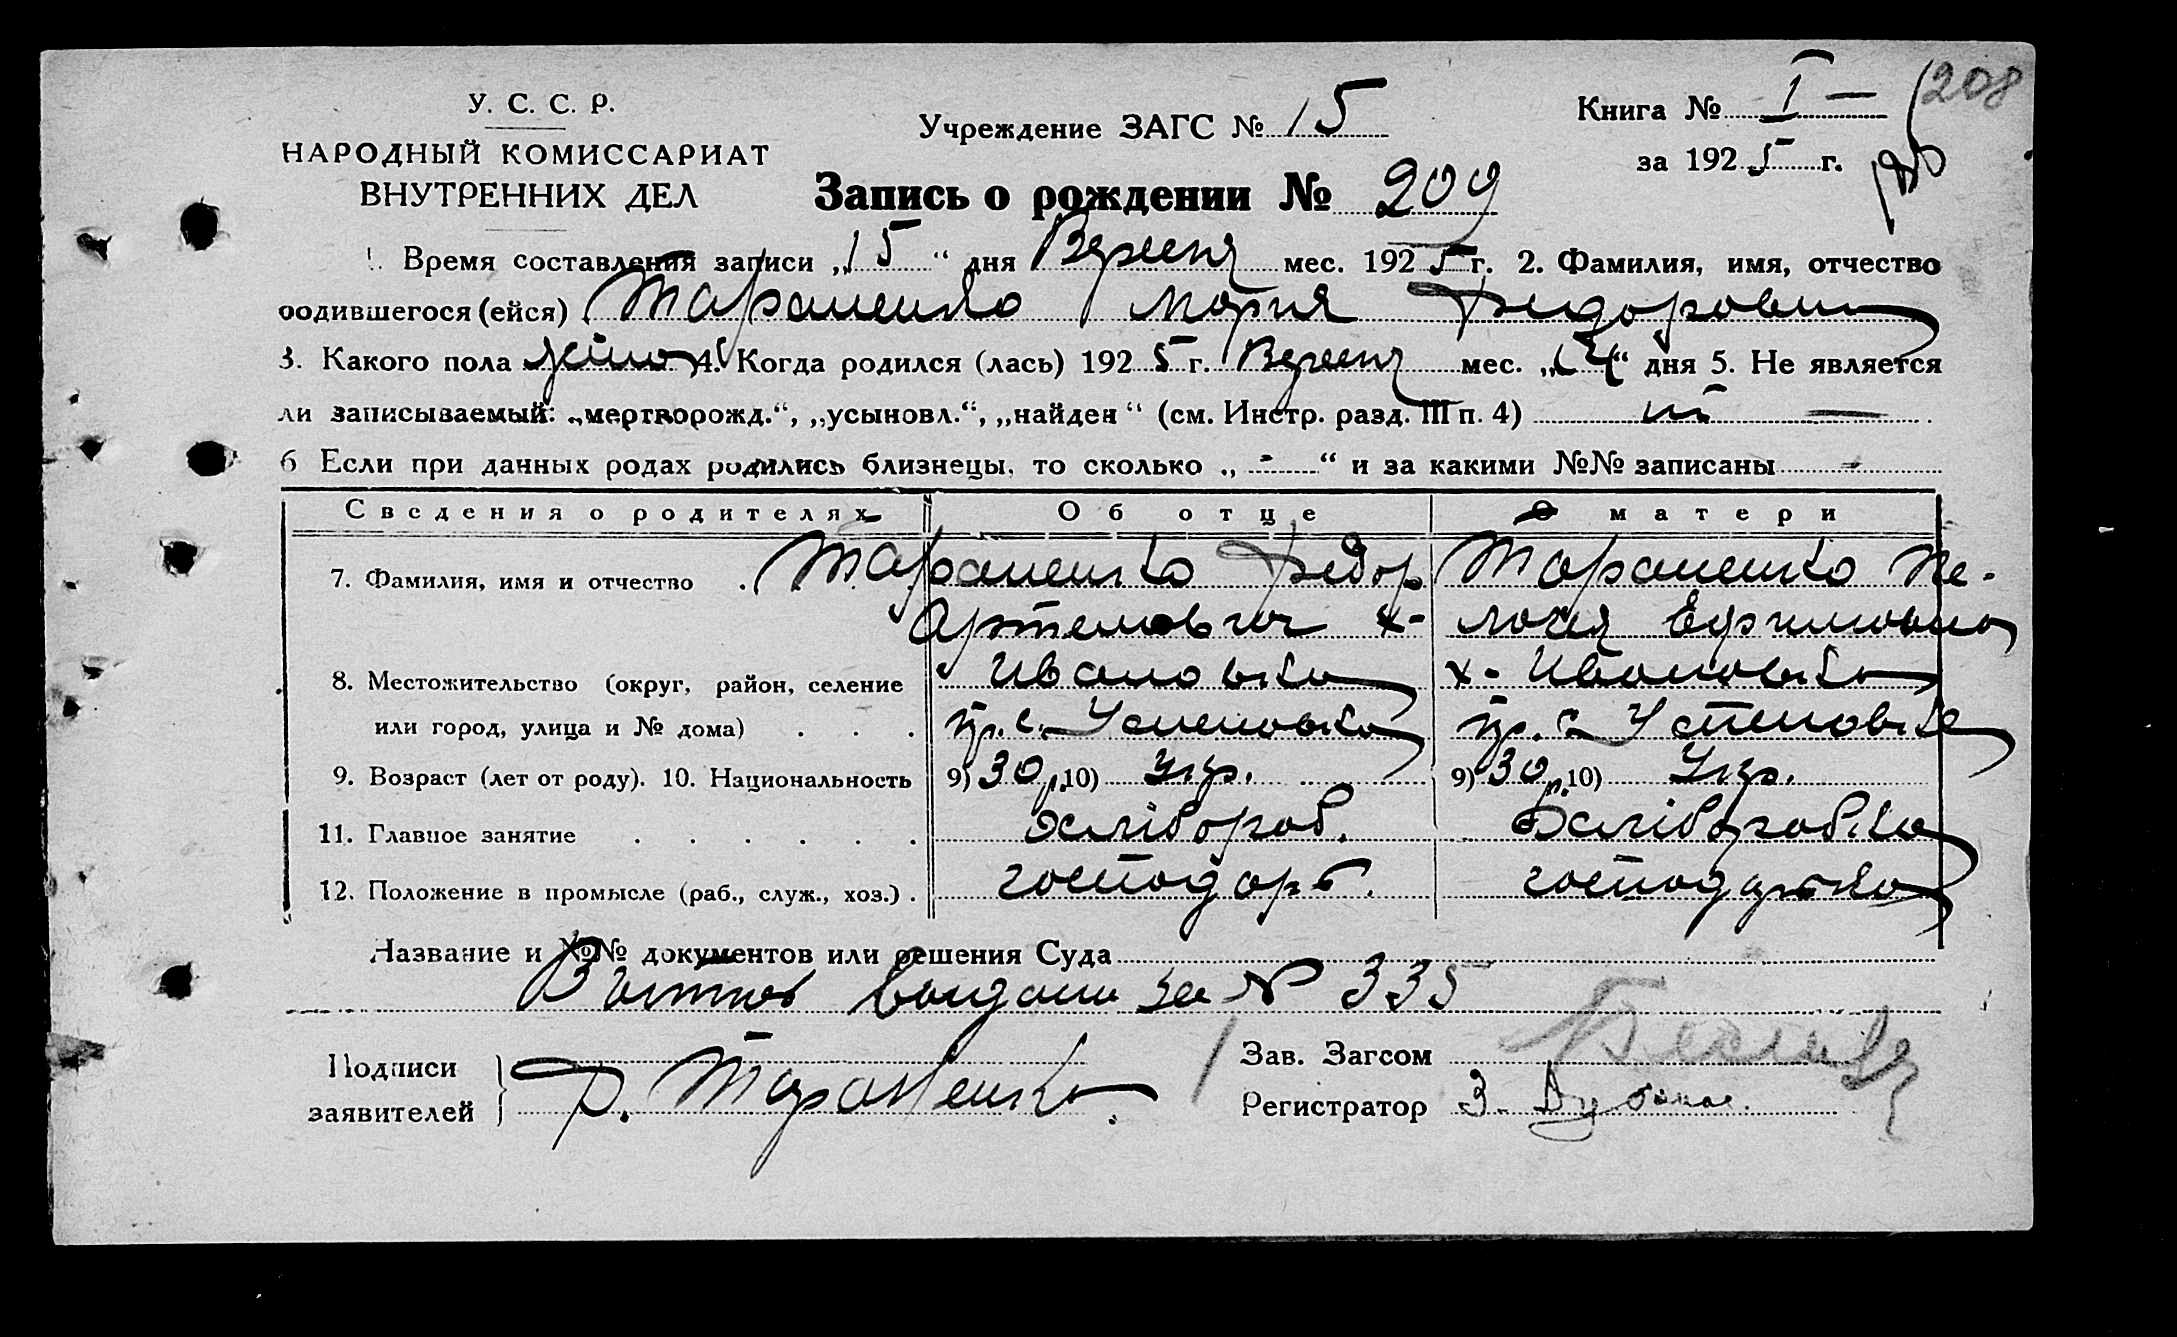 208
У. С. С. Р.
НАРОДНЫЙ КОМИССАРИАТ
ВНУТРЕННИХ ДЕЛ
Учреждение ЗАГС № 15
Книга № I —
за 1925 г.
Запись о рождении № 209
1. Время составления записи „15“ дня Вересня мес. 1925 г. 2. Фамилия, имя, отчество
родившегося (ейся) Тараненко Мария Федоровна
3. Какого пола жіноч. 4. Когда родился (лась) 1925 г. Вересня мес. „14“ дня 5. Не является
ли записываемый: „мертворожд.“, „усыновл.“, „найден“ (см. Инстр. разд. III п. 4) ні —
6 Если при данных родах родились близнецы, то сколько „-“ и за какими №№ записаны -
Сведения о родителях Об отце О матери
7. Фамилия, имя и отчество Тараненко Федор Тараненко Пе-
Артемович х- лагея Ефимовна
8. Местожительство (округ, район, селение Ивановка х. Ивановка
или город, улица и № дома) пр. с. Успеновка пр. с. Успеновка
9. Возраст (лет от роду). 10. Национальность 9) 30 р. 10) Укр. 9) 30 р. 10) Укр.
11. Главное занятие Хлібороб. Хліборобка
12. Положение в промысле (раб., служ., хоз.) господарь. господарька
Название и №№ документов или решения Суда
Витяг выдана за № 335
Подписи
заявителей
Ф. Тараненко
Зав. Загсом
Регистратор З.